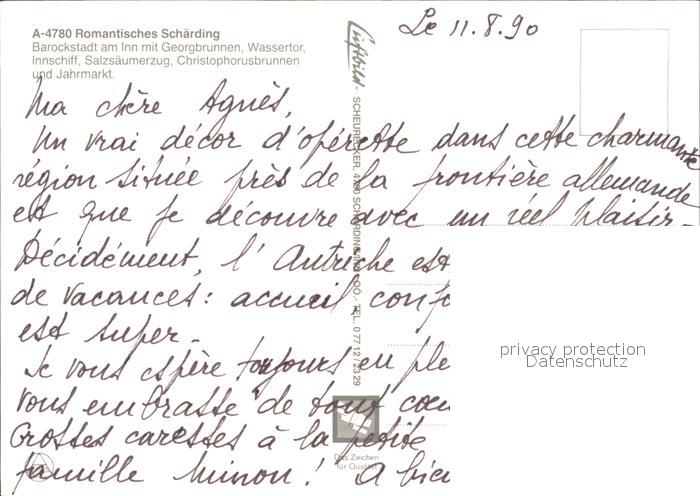 A-4780 Romantisches Schärding
Barockstadt am Inn mit Georgbrunnen, Wassertor,
Innschiff, Salzsäumerzug, Christophorusbrunnen
und Jahrmarkt.
Le 11.8.90
Ma chère Agnès,
Un vrai décor d'opérette dans cette charmante
région située près de la frontière allemande
est que je découvre avec un réel plaisir.
Décidément, l'Autriche est
de vacances: accueil conf
est super.
Je vous espère toujours en ple
vous embrasse de tout cœu
Grosses caresses à la petite
famille Minon! A bien
Luftbild - SCHEURECKER, 4780 SCHÄRDING/INN, OÖ. - TEL. 0 77 12 / 23 29
Das Zeichen
für Qualität
privacy protection
Datenschutz